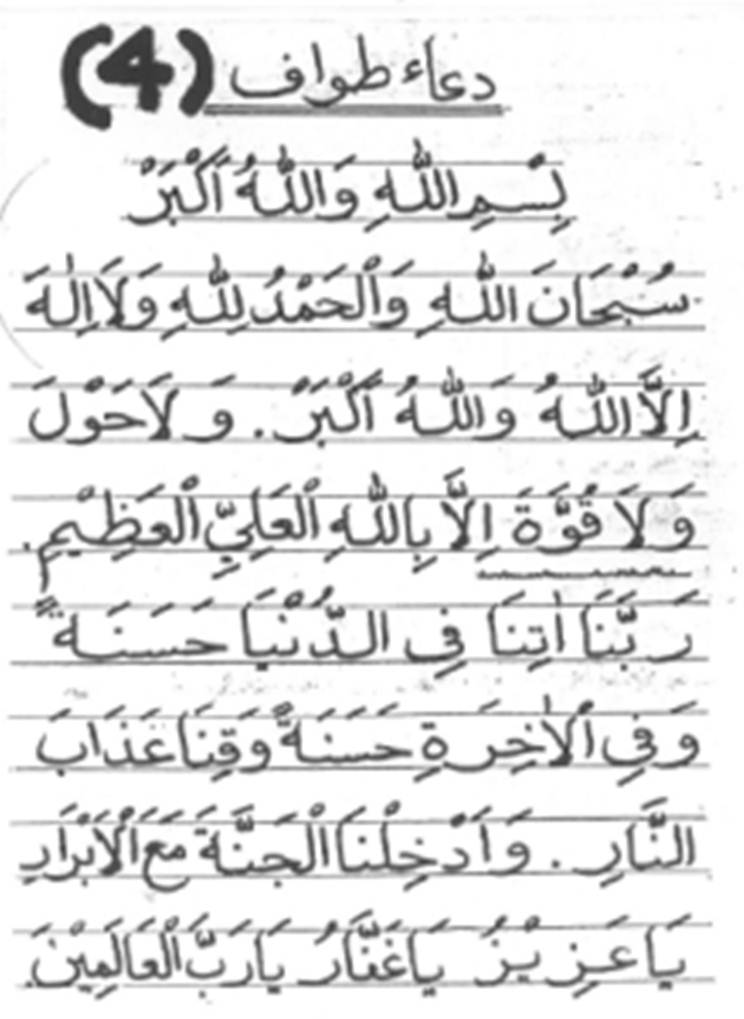 دعاء طواف (4)
بِسْمِ اللّٰهِ وَاللّٰهُ أَكْبَرْ
سُبْحَانَ اللّٰهِ وَالْحَمْدُ لِلّٰهِ وَلَا اِلٰهَ
اِلَّا اللّٰهُ وَاللّٰهُ أَكْبَرْ. وَلَا حَوْلَ
وَلَا قُوَّةَ اِلَّا بِاللّٰهِ الْعَلِيِّ الْعَظِيْمِ.
رَبَّنَا اٰتِنَا فِى الدُّنْيَا حَسَنَةً
وَفِى الْاٰخِرَةِ حَسَنَةً وَقِنَا عَذَابَ
النَّارِ. وَاَدْخِلْنَا الْجَنَّةَ مَعَ الْاَبْرَارِ
يَا عَزِيْزُ يَا غَفَّارُ يَا رَبَّ الْعَالَمِيْنَ.